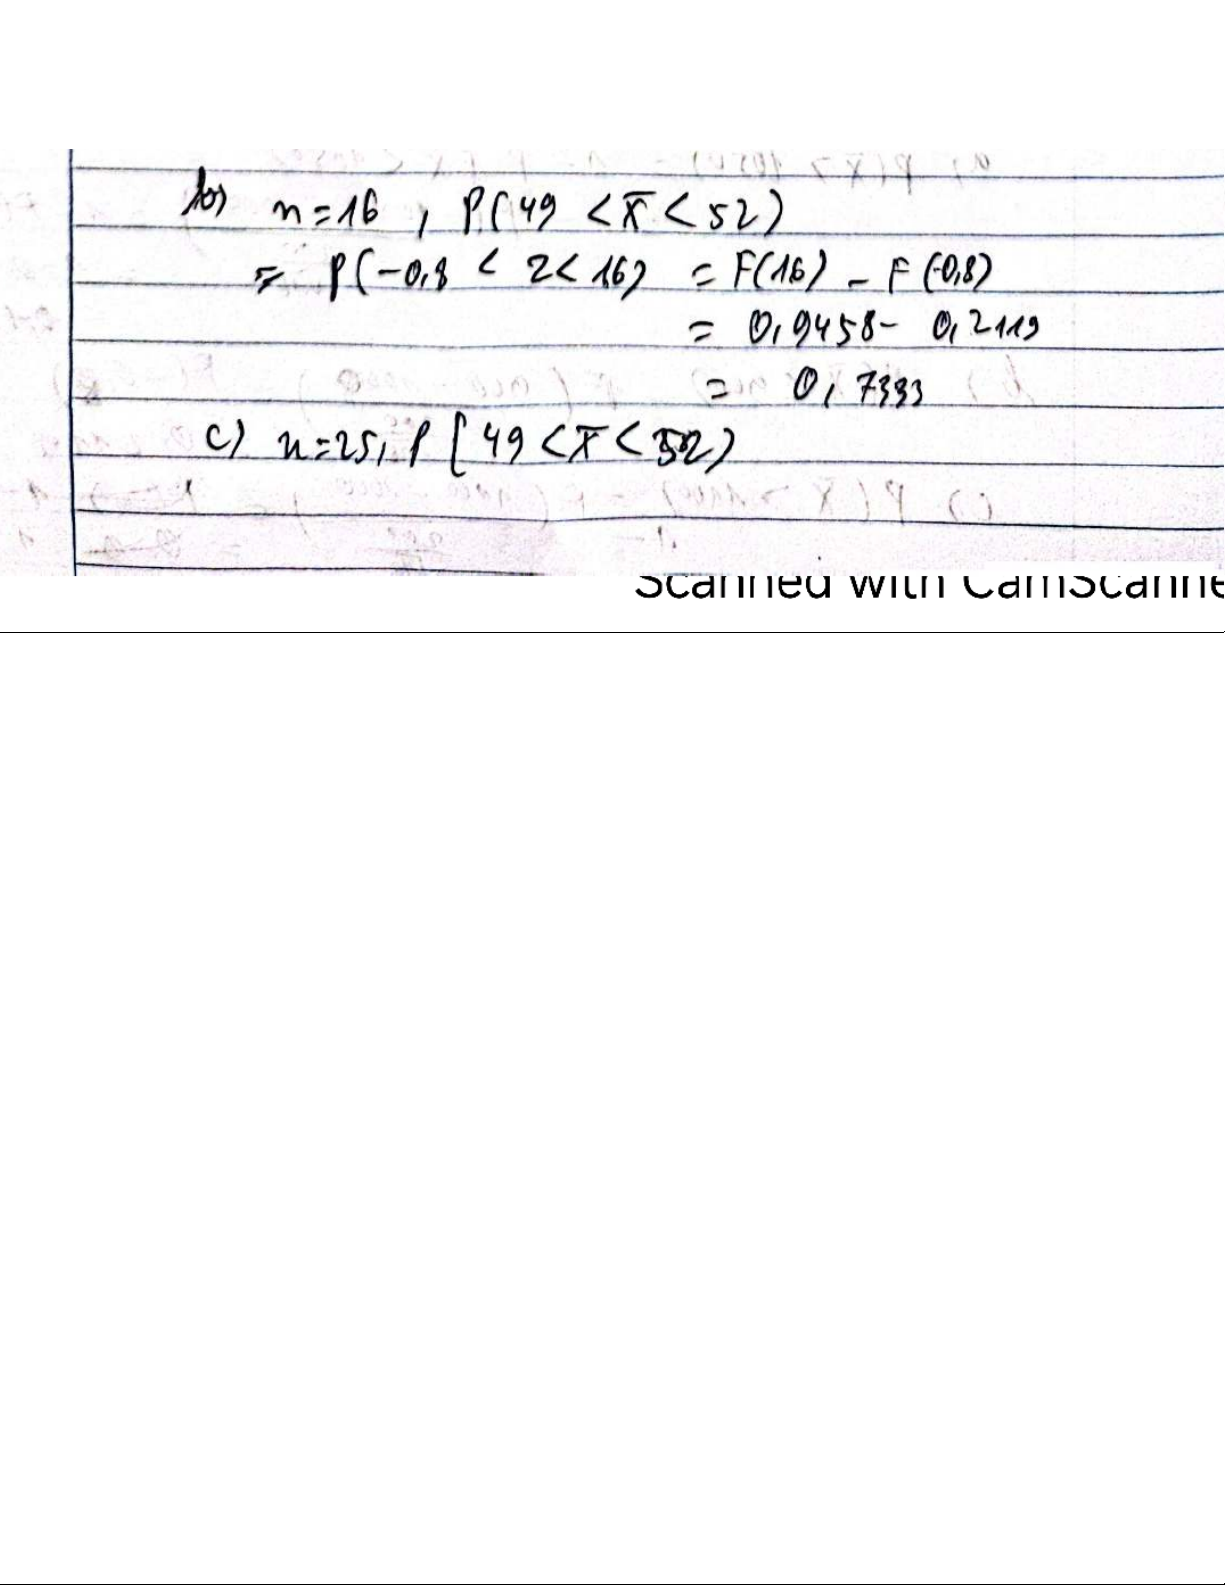 b) n=16 , P(49 < x̄ < 52)
= P(-0,8 < Z < 1,6) = F(1,6) - F(-0,8)
= 0,9458 - 0,2119
= 0,7333
c) n=25, P[49 < x̄ < 52)
Scanned with CamScanne